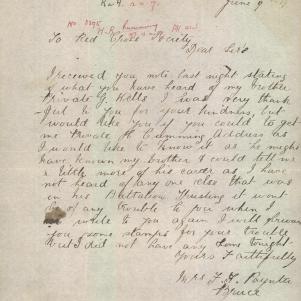 June 9
To Red Cross Society
Dear Sir
I received you note last night stating
what you have heard of my brother
Private G. Kells I was very thank
ful to you for your kindness, but
would like you if you could to get
me Private H Cumming Address as
I would like to know it as he might
have known my brother & could tell me
a little more of his career as I have
not heard of any one else that was
in his Battalion Trusting it wont
be of any trouble to you when I
write to you again I will forward
you some stamps for your trouble
but I did not have any tonight
Yours Faithfully
Mrs F. Poynter